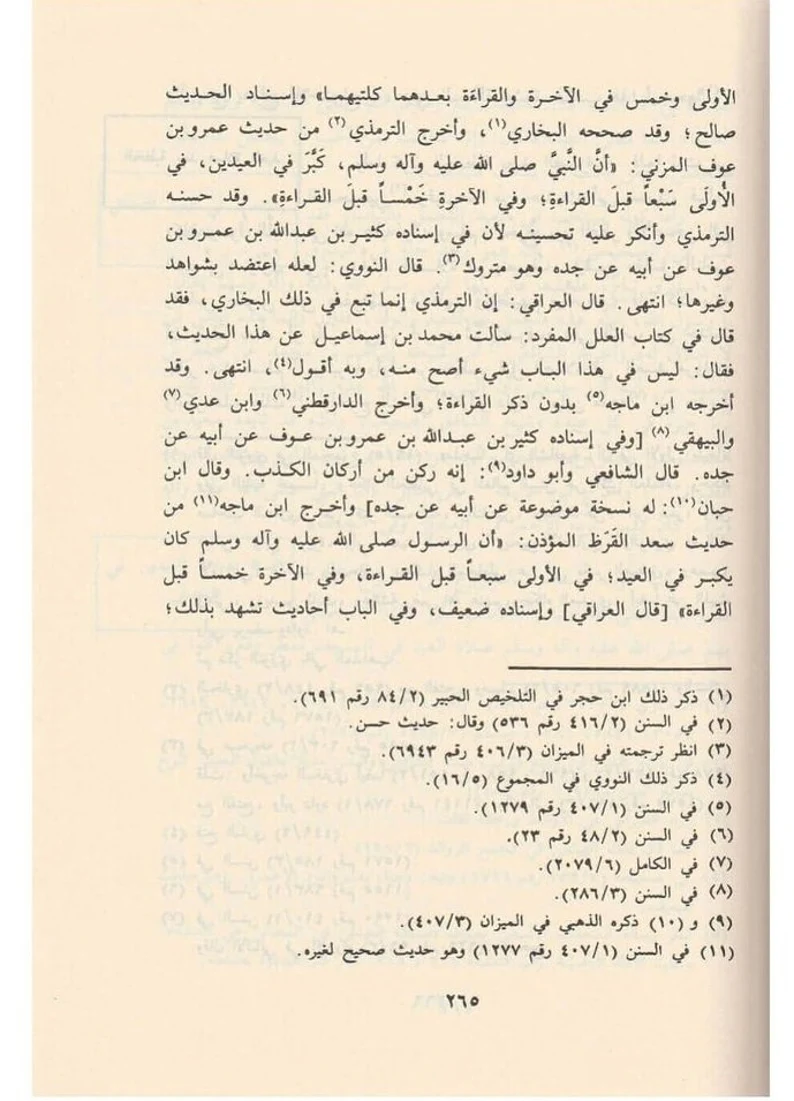 الأولى وخمس في الآخـرة والقراءَة بعـدهما كلتيهمـا» وإسـناد الحـديث
صالح؛ وقد صححه البخاري(١)، وأخرج الترمذي(٢) من حديث عمرو بن
عوف المزني: «أنَّ النَّبيَّ صلى الله عليه وآله وسلم، كَبَّرَ في العيدين، في
الأُولَى سَبْعاً قبلَ القراءةِ؛ وفي الآخرةِ خَمْسـاً قبلَ القـراءةِ». وقد حسنـه
الترمذي وأنكر عليه تحسينـه لأن في إسناده كثيـر بن عبدالله بن عمـرو بن
عوف عن أبيه عن جده وهو متروك(٣). قال النووي: لعله اعتضد بشواهد
وغيرها؛ انتهى. قال العراقي: إن الترمذي إنما تبع في ذلك البخاري، فقد
قال في كتاب العلل المفرد: سألت محمد بن إسماعيـل عن هذا الحديث،
فقال: ليس في هذا البـاب شيء أصح منـه، وبه أقـول(٤)، انتهى. وقد
أخرجه ابن ماجه(٥) بدون ذكر القراءة؛ وأخرج الدارقطني(٦) وابن عدي(٧)
والبيهقي(٨) [وفي إسناده كثير بن عبـدالله بن عمرو بن عـوف عن أبيه عن
جده. قال الشافعي وأبو داود(٩): إنه ركن من أركان الكـذب. وقال ابن
حبان(١٠): له نسخة موضوعة عن أبيه عن جده] وأخـرج ابن ماجه(١١) من
حديث سعد القَرَظ المؤذن: «أن الرسول صلى الله عليه وآله وسلم كان
يكبـر في العيد؛ في الأولى سبعـاً قبل القـراءة، وفي الآخرة خمسـاً قبل
القراءة» [قال العراقي] وإسناده ضعيف، وفي الباب أحاديث تشهد بذلك؛
(١) ذكر ذلك ابن حجر في التلخيص الحبير (٨٤/٢ رقم ٦٩١).
(٢) في السنن (٤١٦/٢ رقم ٥٣٦) وقال: حديث حسن.
(٣) انظر ترجمته في الميزان (٤٠٦/٣ رقم ٦٩٤٣).
(٤) ذكر ذلك النووي في المجموع (١٦/٥).
(٥) في السنن (٤٠٧/١ رقم ١٢٧٩).
(٦) في السنن (٤٨/٢ رقم ٢٣).
(٧) في الكامل (٢٠٧٩/٦).
(٨) في السنن (٢٨٦/٣).
(٩) و (١٠) ذكره الذهبي في الميزان (٤٠٧/٣).
(١١) في السنن (٤٠٧/١ رقم ١٢٧٧) وهو حديث صحيح لغيره.
٢٦٥